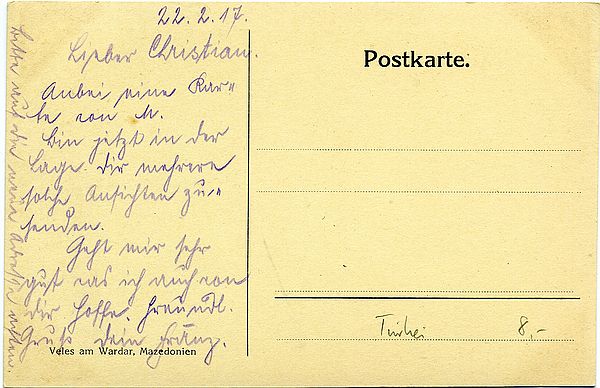 22.2.17.
Lieber Christian.
Anbei eine Kar-
te von M.
Bin jetzt in der
Lage dir mehrere
solche Ansichten zu-
senden.
Geht mir sehr
gut was ich auch von
dir hoffe. Freundl.
Gruß dein Franz.
Bitte auf die neue Adresse achten.
Veles am Wardar, Mazedonien
Postkarte.
Türkei 8,-